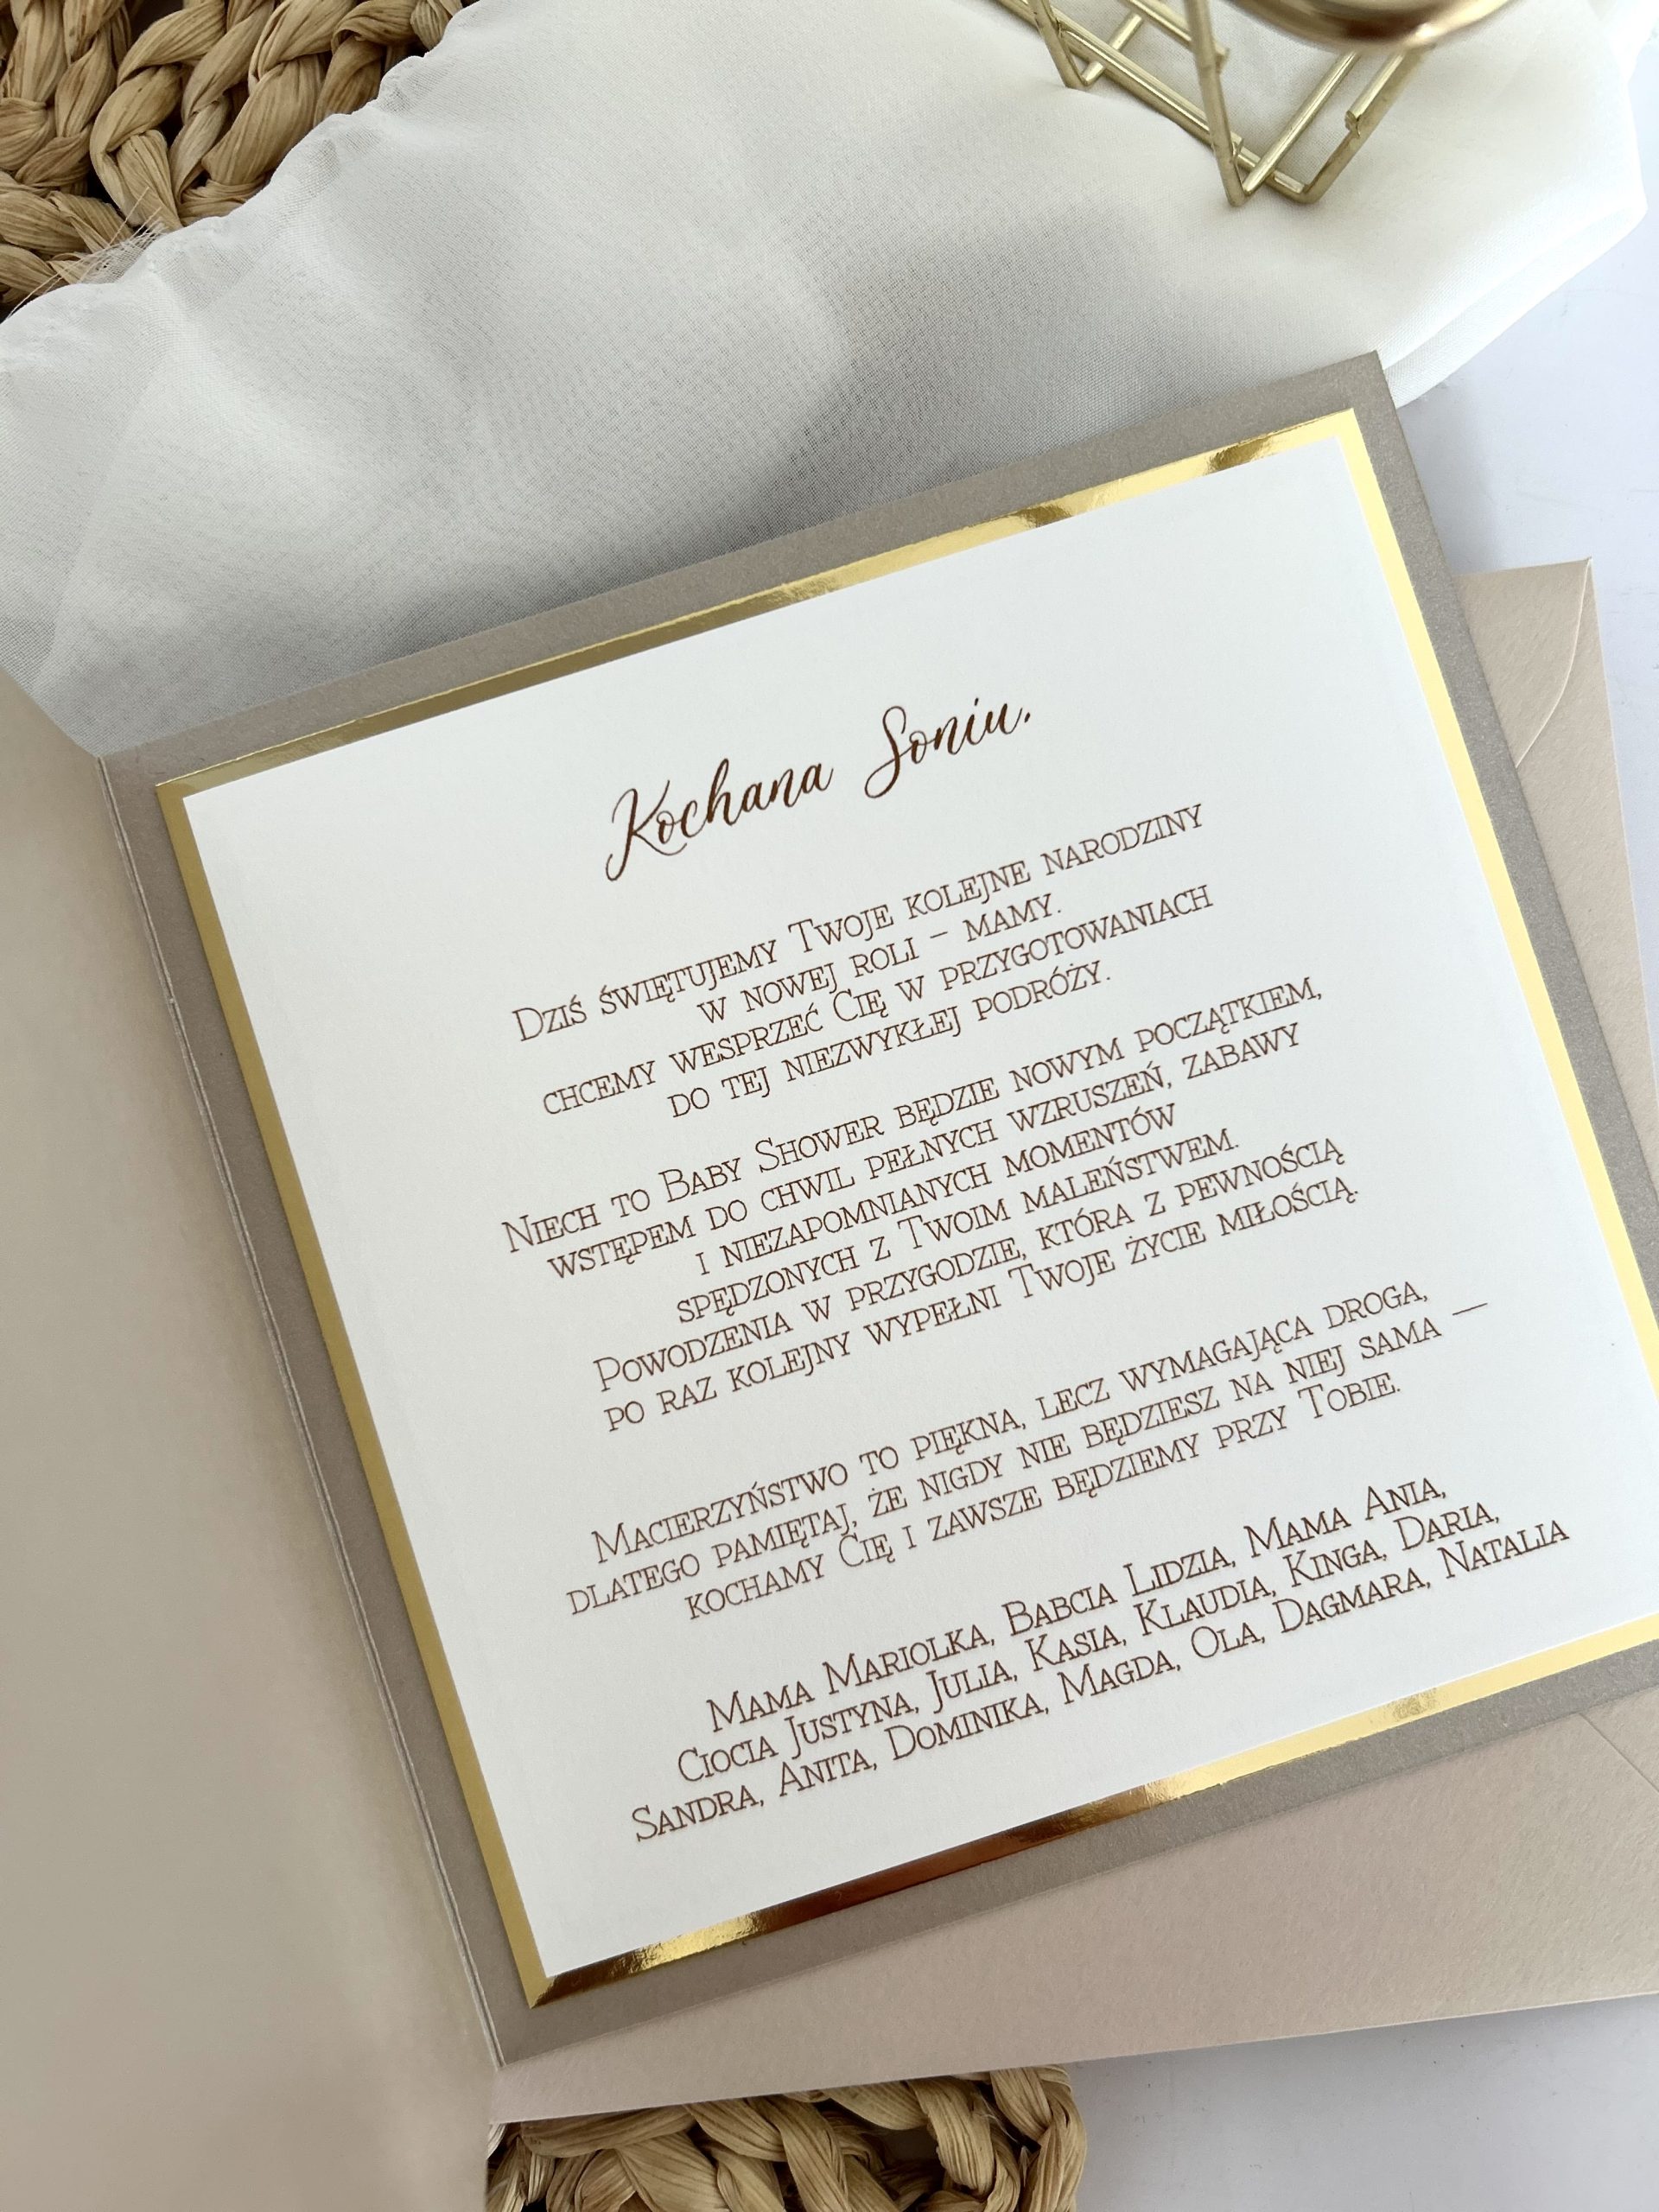 Kochana Soniu,
Dziś świętujemy Twoje kolejne narodziny
w nowej roli – mamy.
chcemy wesprzeć Cię w przygotowaniach
do tej niezwykłej podróży.
Niech to Baby Shower będzie nowym początkiem,
wstępem do chwil pełnych wzruszeń, zabawy
i niezapomnianych momentów
spędzonych z Twoim maleństwem.
Powodzenia w przygodzie, która z pewnością
po raz kolejny wypełni Twoje życie miłością.
Macierzyństwo to piękna, lecz wymagająca droga,
dlatego pamiętaj, że nigdy nie będziesz na niej sama —
kochamy Cię i zawsze będziemy przy Tobie.
Mama Mariolka, Babcia Lidzia, Mama Ania,
Ciocia Justyna, Julia, Kasia, Klaudia, Kinga, Daria,
Sandra, Anita, Dominika, Magda, Ola, Dagmara, Natalia